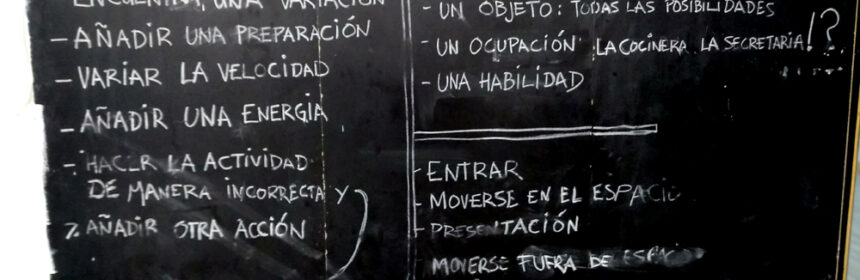 ENCUENTRA, UNA VARIACIÓN
- AÑADIR UNA PREPARACIÓN
- VARIAR LA VELOCIDAD
- AÑADIR UNA ENERGIA
- HACER LA ACTIVIDAD
DE MANERA INCORRECTA Y
7. AÑADIR OTRA ACCIÓN
- UN OBJETO: TODAS LAS POSIBILIDADES
- UN OCUPACIÓN: LA COCINERA LA SECRETARIA!?
- UNA HABILIDAD
- ENTRAR
- MOVERSE EN EL ESPACIO
- PRESENTACIÓN
MOVERSE FUERA DE